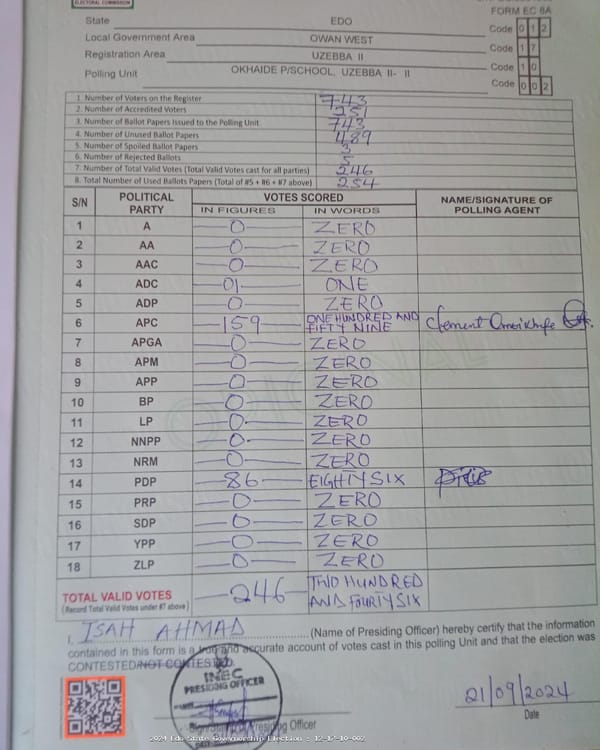 ELECTORAL COMMISSION
FORM EC 8A
State EDO Code 0 1 2
Local Government Area OWAN WEST Code 1 7
Registration Area UZEBBA II Code 1 0
Polling Unit OKHAIDE P/SCHOOL, UZEBBA II- II Code 0 0 2
1. Number of Voters on the Register 743
2. Number of Accredited Voters 251
3. Number of Ballot Papers Issued to the Polling Unit 743
4. Number of Unused Ballot Papers 489
5. Number of Spoiled Ballot Papers 3
6. Number of Rejected Ballots 5
7. Number of Total Valid Votes (Total Valid Votes cast for all parties) 246
8. Total Number of Used Ballots Papers (Total of #5 + #6 + #7 above) 254
S/N POLITICAL PARTY VOTES SCORED NAME/SIGNATURE OF POLLING AGENT
IN FIGURES IN WORDS
1 A 0 ZERO
2 AA 0 ZERO
3 AAC 0 ZERO
4 ADC 01 ONE
5 ADP 0 ZERO
6 APC 159 ONE HUNDRED AND FIFTY NINE Clement
7 APGA 0 ZERO
8 APM 0 ZERO
9 APP 0 ZERO
10 BP 0 ZERO
11 LP 0 ZERO
12 NNPP 0 ZERO
13 NRM 0 ZERO
14 PDP 86 EIGHTY SIX
15 PRP 0 ZERO
16 SDP 0 ZERO
17 YPP 0 ZERO
18 ZLP 0 ZERO
TOTAL VALID VOTES 246 TWO HUNDRED
(Record Total Valid Votes under #7 above) AND FOURTY SIX
I, ISAH AHMAD (Name of Presiding Officer) hereby certify that the information
contained in this form is a true and accurate account of votes cast in this polling Unit and that the election was
CONTESTED/NOT CONTESTED.
INEC
PRESIDING OFFICER
21/09/2024
Presiding Officer
Date
2024 Edo State Governorship Election : 12-17-10-002
ORIGINAL